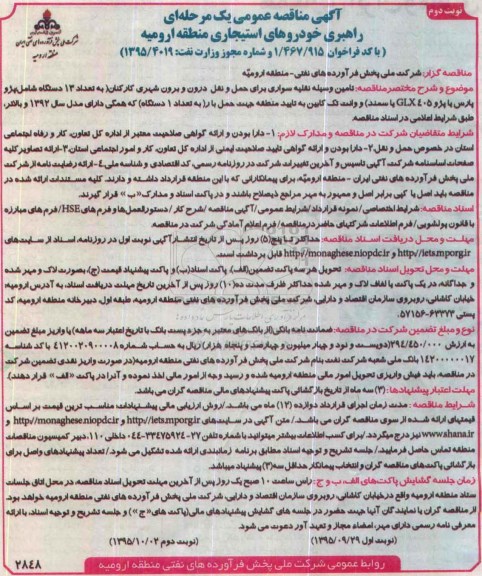 نوبت دوم
آگهی مناقصه عمومی یک مرحله‌ای
راهبری خودروهای استیجاری منطقه ارومیه
( با کد فراخوان ۱/۴۶۷/۹۱۵ و شماره مجوز وزارت نفت: ۱۳۹۵/۴۰۱۹ )
شرکت ملی پخش فرآورده‌های نفتی ایران
منطقه ارومیه
مناقصه گزار: شرکت ملی پخش فرآورده های نفتی- منطقه ارومیه
موضوع و شرح مختصر مناقصه: تامین وسیله نقلیه سواری برای حمل و نقل درون و برون شهری کارکنان( به تعداد ۱۳ دستگاه شامل پژو
پارس یا پژو ۴۰۵ GLX یا سمند) و وانت تک کابین به تایید منطقه جهت حمل بار( به تعداد ۱ دستگاه) که همگی دارای مدل سال ۱۳۹۲ و بالاتر،
طبق شرایط اعلامی در اسناد مناقصه.
شرایط متقاضیان شرکت در مناقصه و مدارک لازم: ۱- دارا بودن و ارائه گواهی صلاحیت معتبر از اداره کل تعاون، کار و رفاه اجتماعی
استان در خصوص حمل و نقل ۲- دارا بودن و ارائه گواهی تایید صلاحیت ایمنی از اداره کل تعاون، کار و امور اجتماعی استان ۳- ارائه تصاویر کلیه
صفحات اساسنامه شرکت، آگهی تاسیس و آخرین تغییرات شرکت در روزنامه رسمی، کد اقتصادی و شناسه ملی ۴- ارائه رضایت نامه از شرکت
ملی پخش فرآورده های نفتی ایران - منطقه ارومیه، برای پیمانکارانی که با این منطقه قرارداد داشته و دارند. کلیه مستندات ارائه شده در
مناقصه باید اصل یا کپی برابر اصل و ممهور به مهر مراجع ذیصلاح باشند و در پاکت اسناد و مدارک «ب» قرار گیرند.
اسناد مناقصه: شرایط اختصاصی/ نمونه قرارداد/شرایط عمومی/ آگهی مناقصه /شرح کار / دستورالعمل‌ها و فرم های HSE/ فرم های مبارزه
با قانون پولشویی/ فرم اطلاعات شرکتهای حاضر در مناقصه/ فرم اعلام آمادگی شرکت در مناقصه
مهلت و محل دریافت اسناد مناقصه: حداکثر تا پنج(۵) روز پس از تاریخ انتشار آگهی نوبت اول در روزنامه. اسناد از سایت‌های
http://iets.mporg.ir و http://monaghese.niopdc.ir قابل برداشت است.
مهلت و محل تحویل اسناد مناقصه: تحویل هر سه پاکت تضمین(الف)، پاکت اسناد(ب) و پاکت پیشنهاد قیمت (ج)، بصورت لاک و مهر شده
و جداگانه، در یک پاکت با لفاف لاک و مهر شده حداکثر ظرف مدت ده(۱۰) روز پس از آخرین تاریخ مهلت دریافت اسناد، به آدرس ارومیه،
خیابان کاشانی، روبروی سازمان اقتصاد و دارایی، شرکت ملی پخش فرآورده های نفتی منطقه ارومیه، طبقه اول، دبیرخانه منطقه ارومیه، کد
پستی ۶۳۳۳۷-۵۷۱۵۶
نوع و مبلغ تضمین شرکت در مناقصه: ضمانت نامه بانکی(از بانک های معتبر به جزء پست بانک با تاریخ اعتبار سه ماهه) یا واریز مبلغ تضمین
به ارزش ۲۹۴/۴۵۰/۰۰۰(دویست و نود و چهار میلیون و چهارصد و پنجاه هزار) ریال به حساب شماره ۴۱۲۰۰۲۰۹۰۰۰۸ با کد شناسه
۱۴۲۰۰۰۰۰۰۱۷ بانک ملی شعبه شرکت نفت بنام شرکت ملی پخش فرآورده های نفتی منطقه ارومیه(در صورت واریز نقدی تضمین شرکت
در مناقصه، باید فیش واریزی تحویل امور مالی منطقه ارومیه شده و رسید وجه از امور مالی اخذ نموده و آنرا در پاکت «الف» قرار دهند).
مهلت اعتبار پیشنهادها: (۳) سه ماه از تاریخ بازگشائی پاکت پیشنهادهای مالی مناقصه گران می باشد.
شرایط مناقصه: مدت زمان اجرای قرارداد دوازده (۱۲) ماه می باشد./روش ارزیابی مالی پیشنهادات مناسب ترین قیمت بر اساس
قیمتهای ارائه شده از سوی مناقصه گران می باشد./ متن آگهی در سایت‌های http://iets.mporg.ir و http://monaghese.niopdc.ir و
www.shana.ir نیز درج میگردد./ برای کسب اطلاعات بیشتر میتوانید با شماره تلفن ۲۷-۳۳۴۷۵۹۲۴-۰۴۴ داخلی ۱۱۰، دبیر کمیسیون مناقصات
منطقه تماس حاصل فرمایید./ جلسه تشریح و توجیه اسناد مطابق برنامه زمانبندی ارائه شده تشکیل می شود./ تعداد پیشنهادهای واصل برای
بازگشائی پاکت های مناقصه گران و انتخاب پیمانکار حداقل سه(۳) پیشنهاد میباشد.
زمان جلسه گشایش پاکت‌های الف، ب و ج: راس ساعت ۱۰ صبح یک روز پس از آخرین مهلت تحویل اسناد مناقصه، در محل اتاق جلسات
ستاد منطقه ارومیه واقع در خیابان کاشانی، روبروی سازمان اقتصاد و دارایی، شرکت ملی پخش فرآورده های نفتی منطقه ارومیه خواهد بود.
از مناقصه گران یا نمایندگان آنها جهت حضور در جلسه های گشایش پیشنهادهای مالی(پاکت های «ج») و جلسه تشریح و توجیه اسناد، با ارائه
معرفی نامه رسمی دارای مهر، امضاء مجاز و تعهدآور دعوت می شود.
(نوبت اول ۱۳۹۵/۰۹/۲۹)
(نوبت دوم ۱۳۹۵/۱۰/۰۲)
روابط عمومی شرکت ملی پخش فرآورده های نفتی منطقه ارومیه
۲۸۴۸